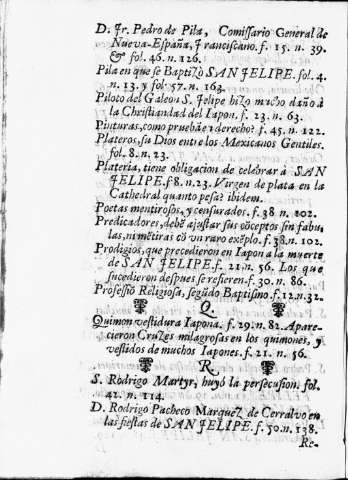 D. Fr. Pedro de Pila, Comissario General de
Nueva-España, Franciscano. f. 15. n. 39.
& fol. 46. n. 126.
Pila en que se Baptizò SAN FELIPE. fol. 4.
n. 13. y fol 57. n. 163.
Piloto del Galeon S. Felipe hizo mucho daño à
la Christiandad del Iapon. f. 23. n. 63.
Pinturas, como pruebãe n derecho? f. 45. n. 122.
Plateros, su Dios entre los Mexicanos Gentiles.
fol. 8. n. 23.
Plateria, tiene obligacion de celebrar à SAN
FELIPE. f 8. n. 23. Virgen de plata en la
Cathedral quanto pesa? ibidem.
Poetas mentirosos, y censurados. f. 38 n. 102.
Predicadores, debẽ ajustar sus cõceptos sin fabu,
las, ni mẽtiras cõ vn raro exẽplo. f. 38. n. 102.
Prodigios, que precedieron en Iapon a la muerte
de SAN FELIPE. f. 21. n. 56. Los que
sucedieron despues se refieren. f. 30. n. 86.
Profession Religiosa, segũdo Baptismo. f. 12. n. 32.
Q
Quimon vestidura Iapona. f. 29. n. 82. Apare-
cieron Cruzes milagrosas en los quimones, y
vestidos de muchos Iapones. f. 21. n. 56.
R
S. Rodrigo Martyr, huyó la persecusion. fol.
42. n. 114.
D. Rodrigo Pacheco Marquez de Cerralvo en
las fiestas de SAN FELIPE. f. 50. n. 138.
Re-